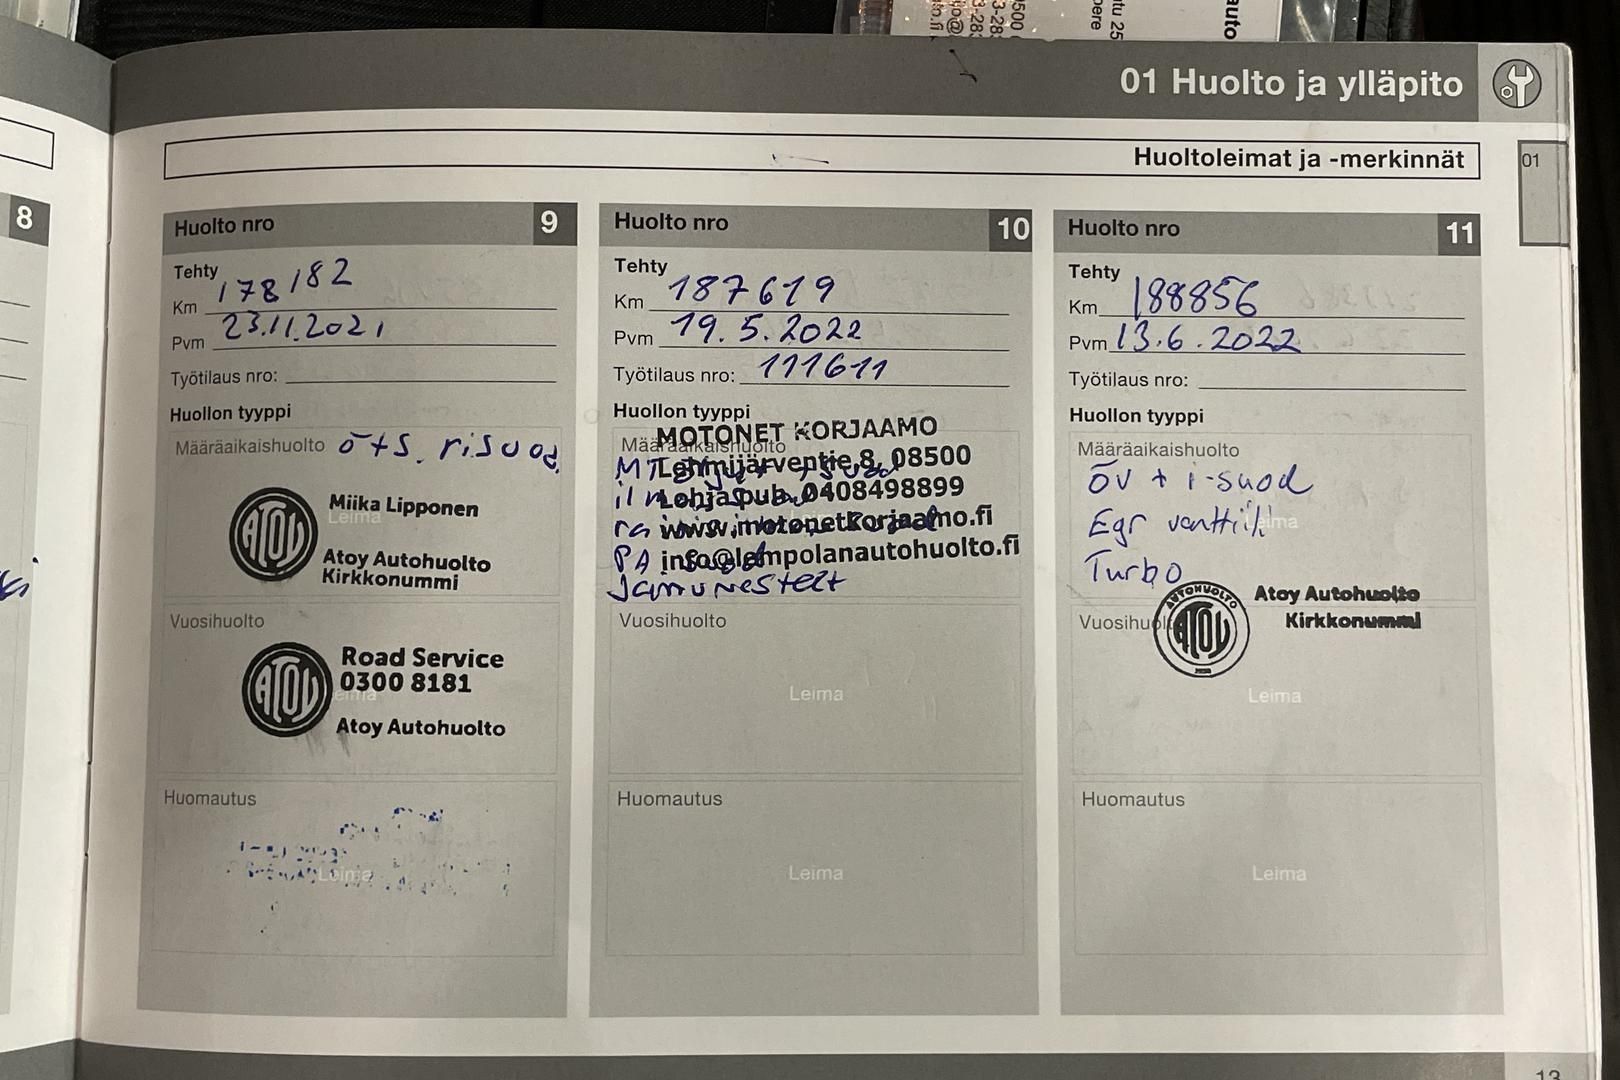 01 Huolto ja ylläpito
Huoltoleimat ja -merkinnät
01
8
Huolto nro 9
Tehty
Km 178182
Pvm 23.11.2021
Työtilaus nro:
Huollon tyyppi
Määräaikaishuolto ö+s. risuod.
Leima
Miika Lipponen
Atoy Autohuolto
Kirkkonummi
ATOY
Vuosihuolto
Leima
Road Service
0300 8181
Atoy Autohuolto
ATOY
Huomautus
Leima
Huolto nro 10
Tehty
Km 187619
Pvm 19.5.2022
Työtilaus nro: 111611
Huollon tyyppi
Määräaikaishuolto
MOTONET KORJAAMO
Lehmijärventie 8, 08500
Lohja puh. 0408498899
www.motonetkorjaamo.fi
info@lempolanautohuolto.fi
Vuosihuolto
Leima
Huomautus
Leima
Huolto nro 11
Tehty
Km 188856
Pvm 13.6.2022
Työtilaus nro:
Huollon tyyppi
Määräaikaishuolto
öv + i-suod
Egr venttiili
Leima
Turbo
Atoy Autohuolto
Kirkkonummi
AUTOHUOLTO
ATOY
Vuosihuolto
Leima
Huomautus
Leima
13